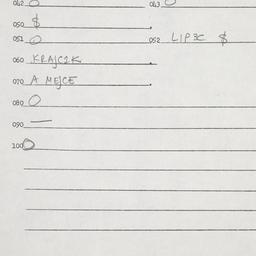 062 O 063 O
050 $
051 O 052 LIPSC $
060 KRAJCZK
070 A MEJCE
080 O
090 —
100 O